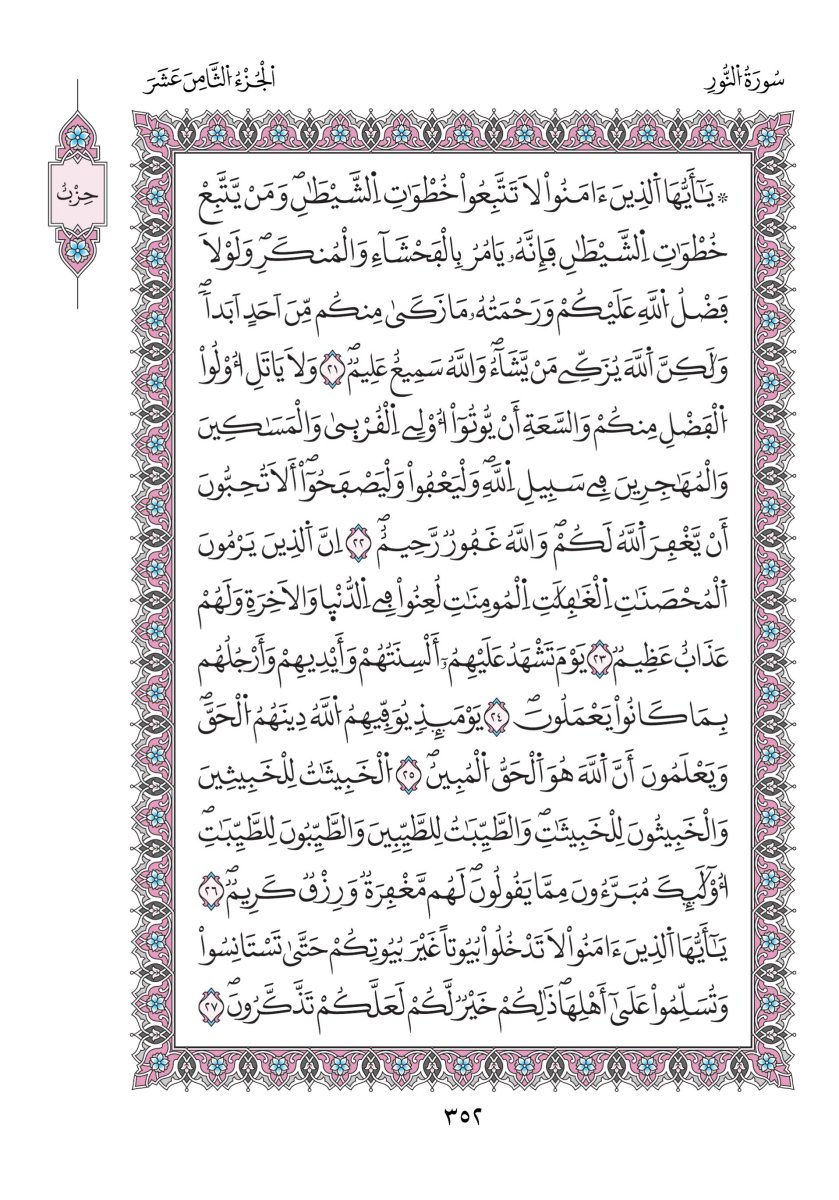 سُورَةُ النُّورِ
الْجُزْءُ الثَّامِنَ عَشَرَ
حِزْبٌ
* يَٰٓأَيُّهَا اَ۬لذِينَ ءَامَنُواْ لَا تَتَّبِعُواْ خُطْوَٰتِ اِ۬لشَّيْطَٰنِۖ وَمَنْ يَّتَّبِعْ
خُطْوَٰتِ اِ۬لشَّيْطَٰنِ فَإِنَّهُۥ يَامُرُ بِالْفَحْشَآءِ وَالْمُنكَرِۖ وَلَوْلَا
فَضْلُ اُ۬للَّهِ عَلَيْكُمْ وَرَحْمَتُهُۥ مَا زَكَىٰ مِنكُم مِّنَ اَحَدٍ اَبَداٗۖ
وَلَٰكِنَّ اَ۬للَّهَ يُزَكِّے مَنْ يَّشَآءُۖ وَاللَّهُ سَمِيعٌ عَلِيمٞۖ ٢١ وَلَا يَاتَلِ أُوْلُواْ
اُ۬لْفَضْلِ مِنكُمْ وَالسَّعَةِ أَنْ يُّوتُوٓاْ أُوْلِے اِ۬لْقُرْبۭيٰ وَالْمَسَٰكِينَ
وَالْمُهَٰجِرِينَ فِے سَبِيلِ اِ۬للَّهِۖ وَلْيَعْفُواْ وَلْيَصْفَحُوٓاْۖ أَلَا تُحِبُّونَ
أَنْ يَّغْفِرَ اَ۬للَّهُ لَكُمْۖ وَاللَّهُ غَفُورٞ رَّحِيمٌۖ ٢٢ اِنَّ اَ۬لذِينَ يَرْمُونَ
اَ۬لْمُحْصَنَٰتِ اِ۬لْغَٰفِلَٰتِ اِ۬لْمُومِنَٰتِ لُعِنُواْ فِے اِ۬لدُّنْي۪ا وَالَاخِرَةِ وَلَهُمْ
عَذَابٌ عَظِيمٞ ٢٣ يَوْمَ تَشْهَدُ عَلَيْهِمُۥٓ أَلْسِنَتُهُمْ وَأَيْدِيهِمْ وَأَرْجُلُهُم
بِمَا كَانُواْ يَعْمَلُونَۖ ٢٤ يَوْمَئِذٖ يُوَفِّيهِمُ اُ۬للَّهُ دِينَهُمُ اُ۬لْحَقَّۖ
وَيَعْلَمُونَ أَنَّ اَ۬للَّهَ هُوَ اَ۬لْحَقُّ اُ۬لْمُبِينُۖ ٢٥ اُ۬لْخَبِيثَٰتُ لِلْخَبِيثِينَ
وَالْخَبِيثُونَ لِلْخَبِيثَٰتِۖ وَالطَّيِّبَٰتُ لِلطَّيِّبِينَ وَالطَّيِّبُونَ لِلطَّيِّبَٰتِۖ
أُوْلَٰٓئِكَ مُبَرَّءُونَ مِمَّا يَقُولُونَۖ لَهُم مَّغْفِرَةٞ وَرِزْقٞ كَرِيمٞۖ ٢٦
يَٰٓأَيُّهَا اَ۬لذِينَ ءَامَنُواْ لَا تَدْخُلُواْ بُيُوتاً غَيْرَ بُيُوتِكُمْ حَتَّىٰ تَسْتَانِسُواْ
وَتُسَلِّمُواْ عَلَىٰٓ أَهْلِهَاۖ ذَٰلِكُمْ خَيْرٞ لَّكُمْ لَعَلَّكُمْ تَذَّكَّرُونَۖ ٢٧
٣٥٢